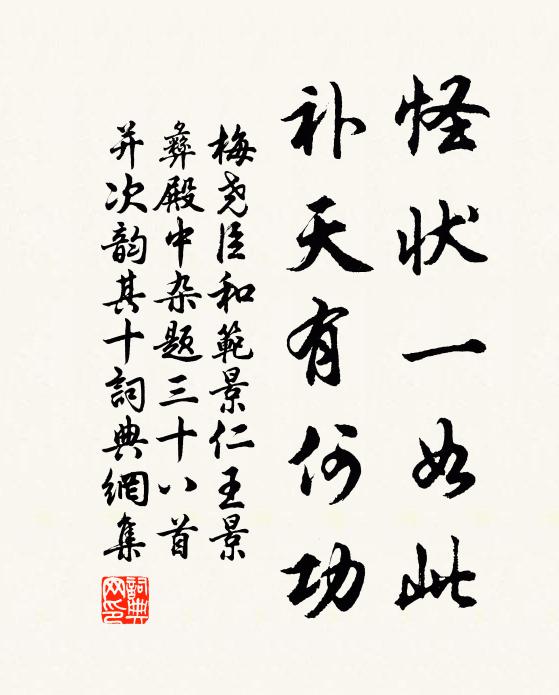 怪状一如此
补天有何功
梅尧臣和範景仁王景
彝殿中杂题三十八首
并次韵其十詞典網集
詞典网印